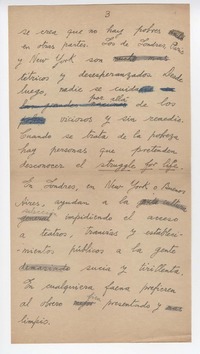 3
se crea que no hay pobres
en otras partes. Los de Londres, París
y New York son
létricos y desesperanzados. Desde
luego, nadie se cuida
por allá de los
viciosos y sin remedio.
Cuando se trata de la pobreza
hay personas que pretenden
desconocer el struggle for life.
En Londres, en New York y Buenos
Aires, ayudan a la
impidiendo el acceso
a teatros, tranvías y estableci-
mientos públicos a la gente
sucia y tirillenta.
En cualquiera faena prefieren
al obrero bien presentado, y
limpio.